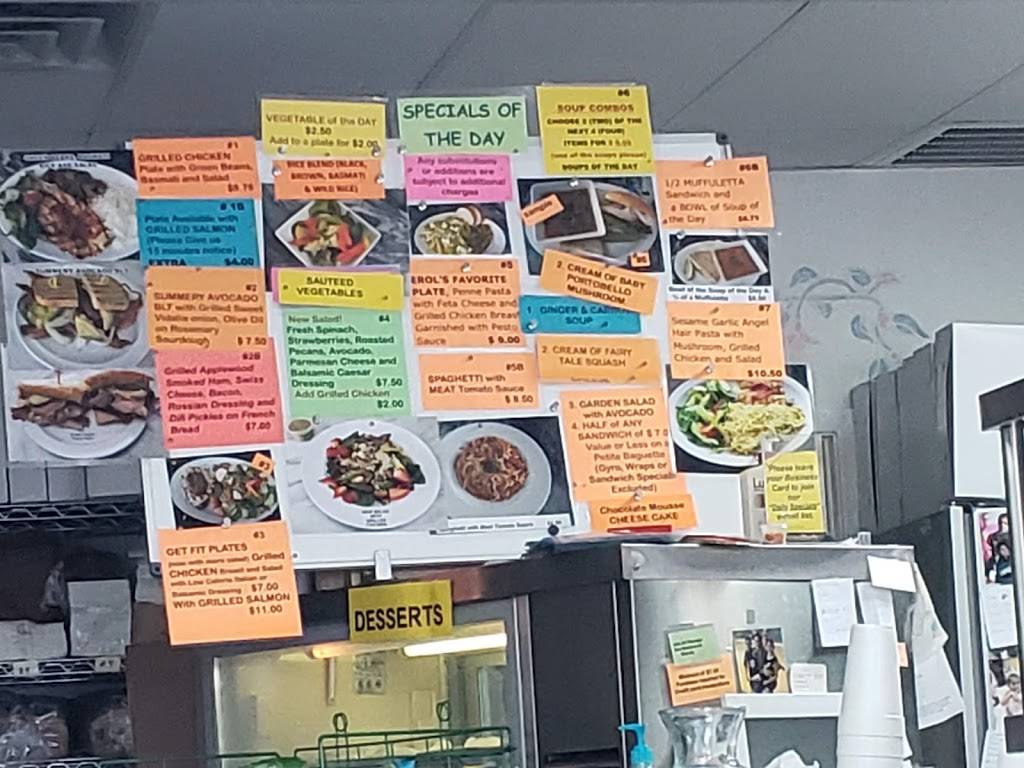 SPECIALS OF
THE DAY
VEGETABLE of the DAY
$2.50
Add to a plate for $2.00
RICE BLEND (BLACK,
BROWN, BASMATI
& WILD RICE)
Any substitutions
or additions are
subject to additional
charges
#6
SOUP COMBOS
CHOOSE 2 (TWO) OF THE
NEXT 4 (FOUR)
ITEMS FOR
(one of the soups please)
SOUPS OF THE DAY
#1
GRILLED CHICKEN
Plate with Green Beans,
Basmati and Salad
# 1B
Plate Available with
GRILLED SALMON
(Please Give us
15 minutes notice)
EXTRA $4.00
#2
SUMMERY AVOCADO
BLT with Grilled Sweet
Vidalia onion, Olive Oil
on Rosemary
Sourdough $ 7.50
#2B
Grilled Applewood
Smoked Ham, Swiss
Cheese, Bacon,
Russian Dressing and
Dill Pickles on French
Bread $7.00
SAUTEED
VEGETABLES
New Salad! #4
Fresh Spinach,
Strawberries, Roasted
Pecans, Avocado,
Parmesan Cheese and
Balsamic Caesar
Dressing $7.50
Add Grilled Chicken
$2.00
#5
EROL'S FAVORITE
PLATE, Penne Pasta
with Feta Cheese and
Grilled Chicken Breast
Garnished with Pesto
Sauce $ 9.00
#5B
SPAGHETTI with
MEAT Tomato Sauce
$ 8.50
Sample
2. CREAM OF BABY
PORTOBELLO
MUSHROOM
1. GINGER & CARROT
SOUP
2. CREAM OF FAIRY
TALE SQUASH
3. GARDEN SALAD
with AVOCADO
4. HALF of ANY
SANDWICH of $ 7.0
Value or Less on a
Petite Baguette
(Gyro, Wraps or
Sandwich Special
Excluded)
Chocolate Mousse
CHEESE CAKE
#6B
1/2 MUFFULETTA
Sandwich and
a BOWL of Soup of
the Day
#7
Sesame Garlic Angel
Hair Pasta with
Mushroom, Grilled
Chicken and Salad
$10.50
Please leave
your Business
Card to join
our
"Daily Specials"
email list
#3
#3
GET FIT PLATES
Grilled
CHICKEN Breast and Salad
with Low Calorie Italian or
Balsamic Dressing $7.00
With GRILLED SALMON
$11.00
DESSERTS